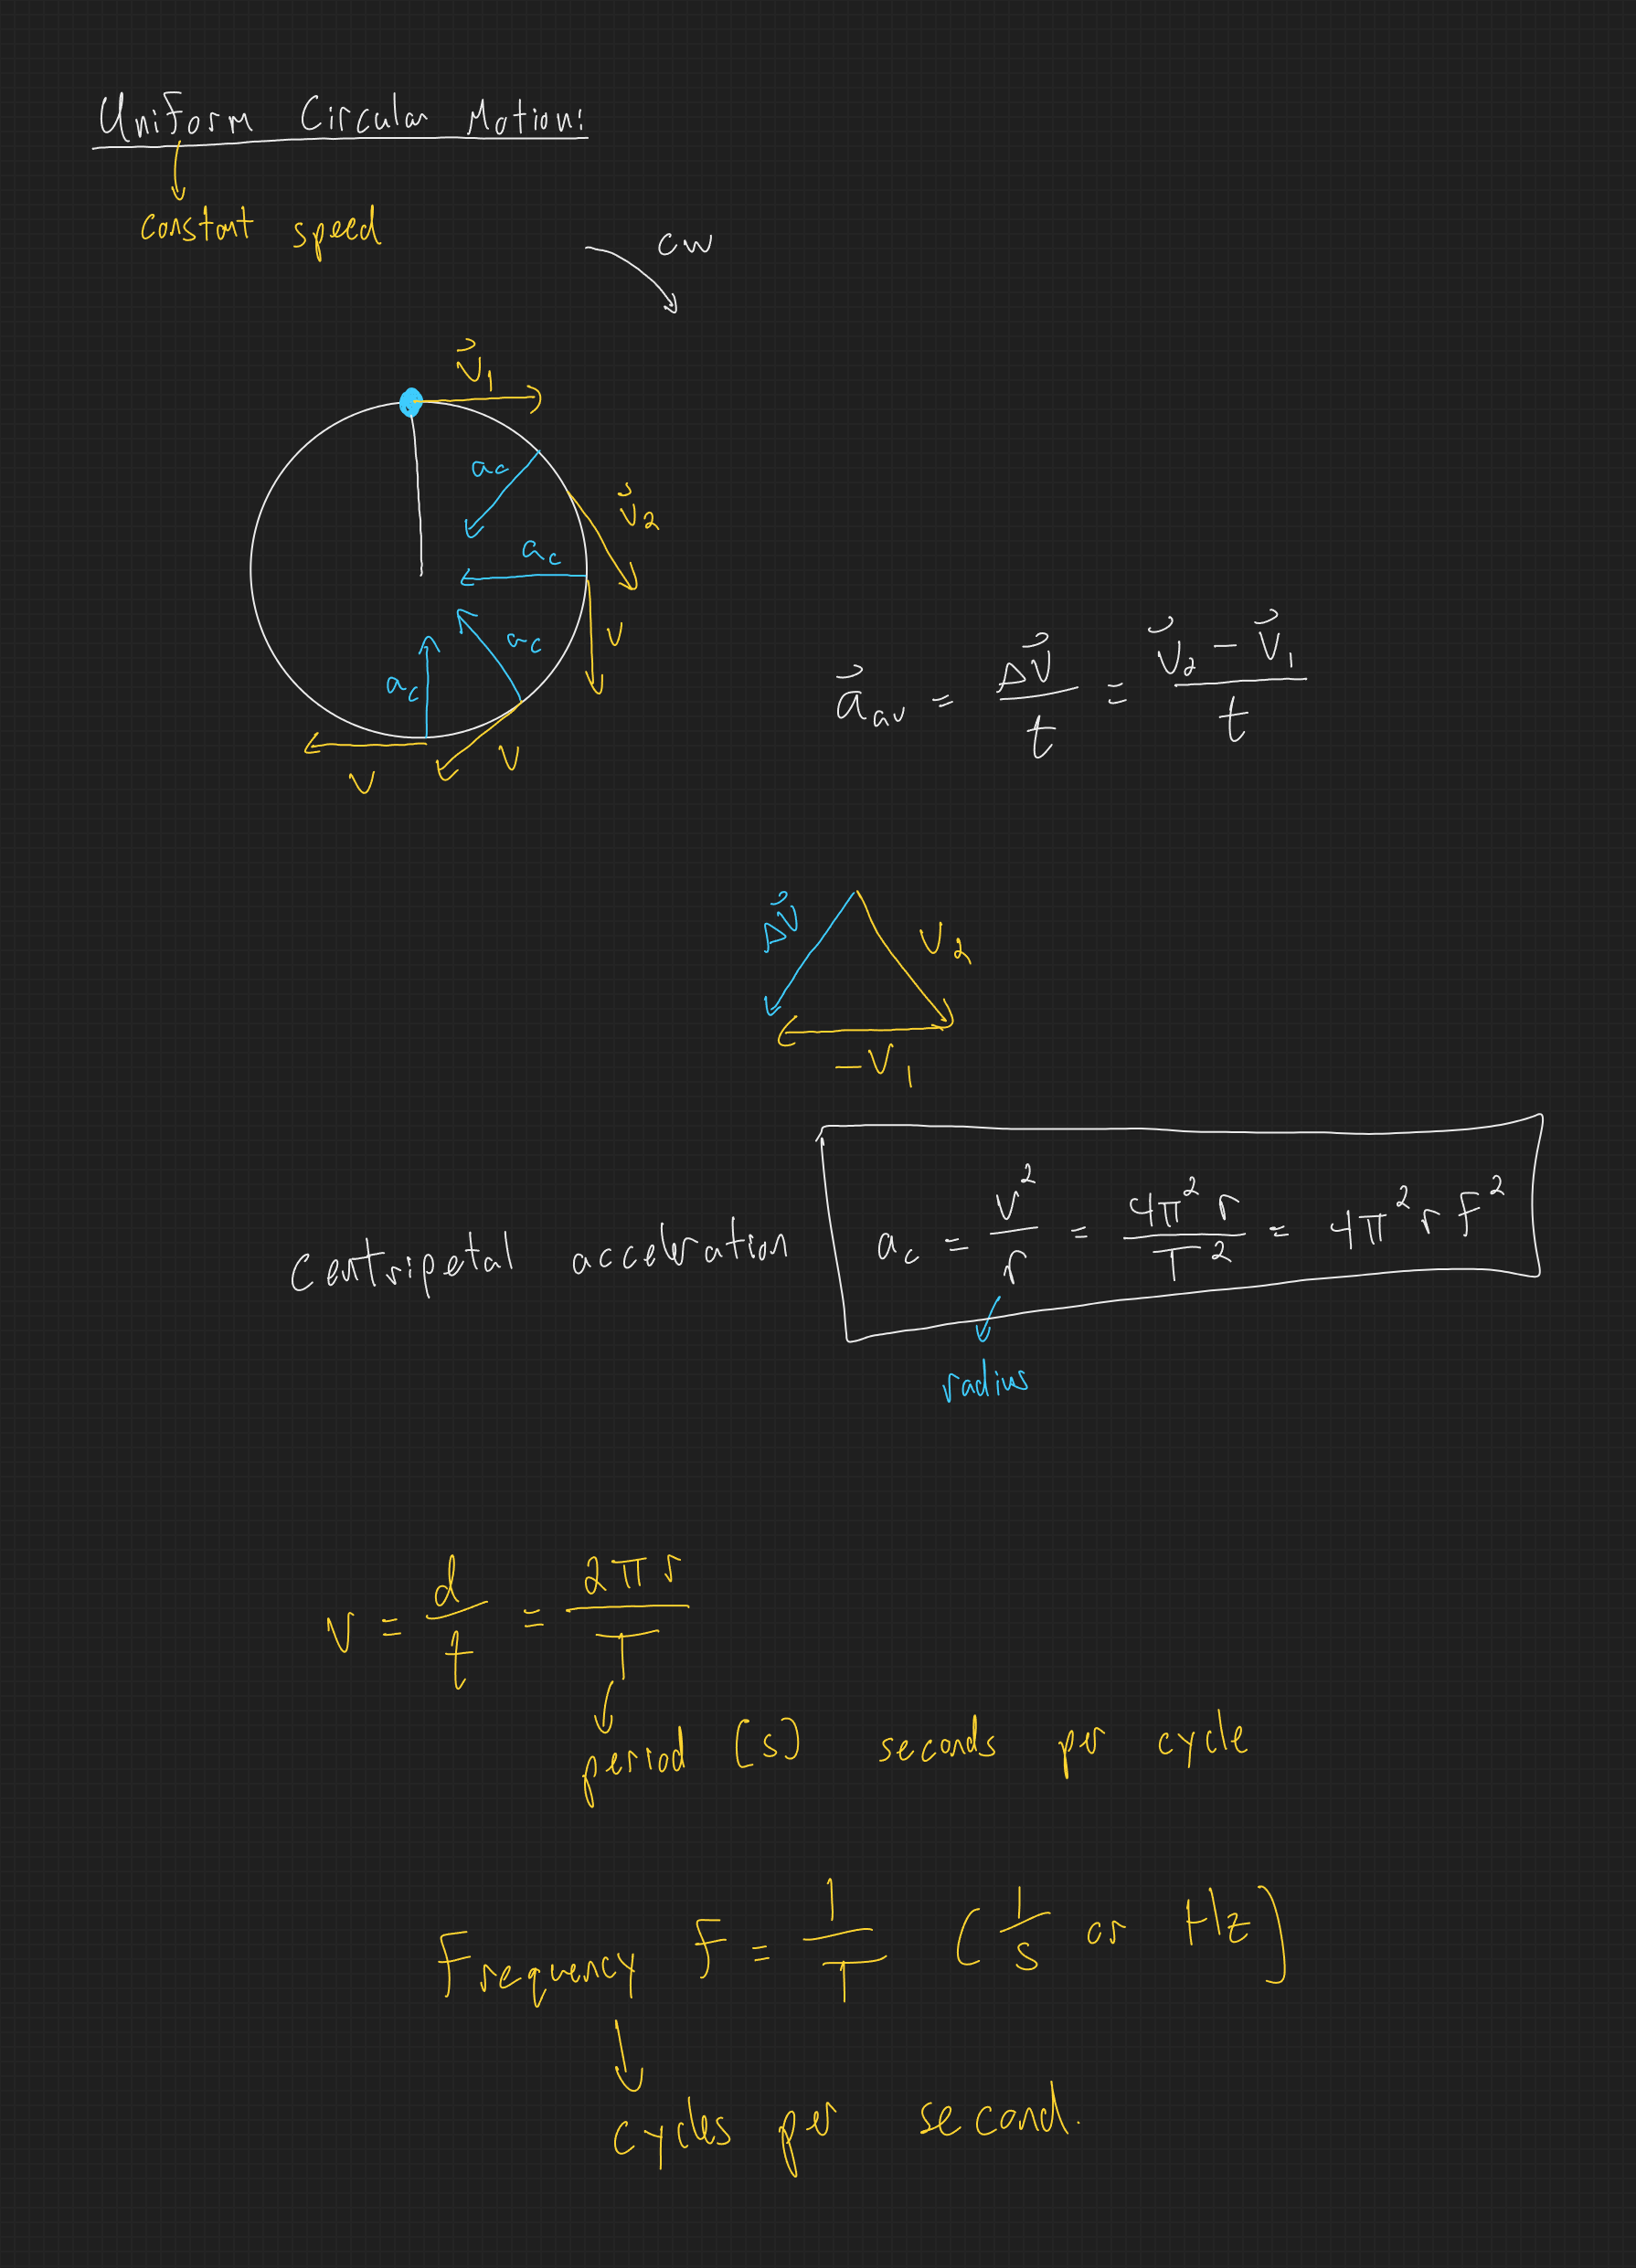 Uniform Circular Motion:
constant speed
CW
v⃗₁
a_c
v⃗₂
a_c
v
a_c
a_c
v
v
a⃗_av = Δv⃗/t = (v⃗₂ − v⃗₁)/t
Δv⃗
v₂
−v₁
Centripetal acceleration a_c = v²/r = 4π²r/T² = 4π²rf²
radius
v = d/t = 2πr/T
period (s) seconds per cycle
Frequency f = 1/T (1/s or Hz)
cycles per second.